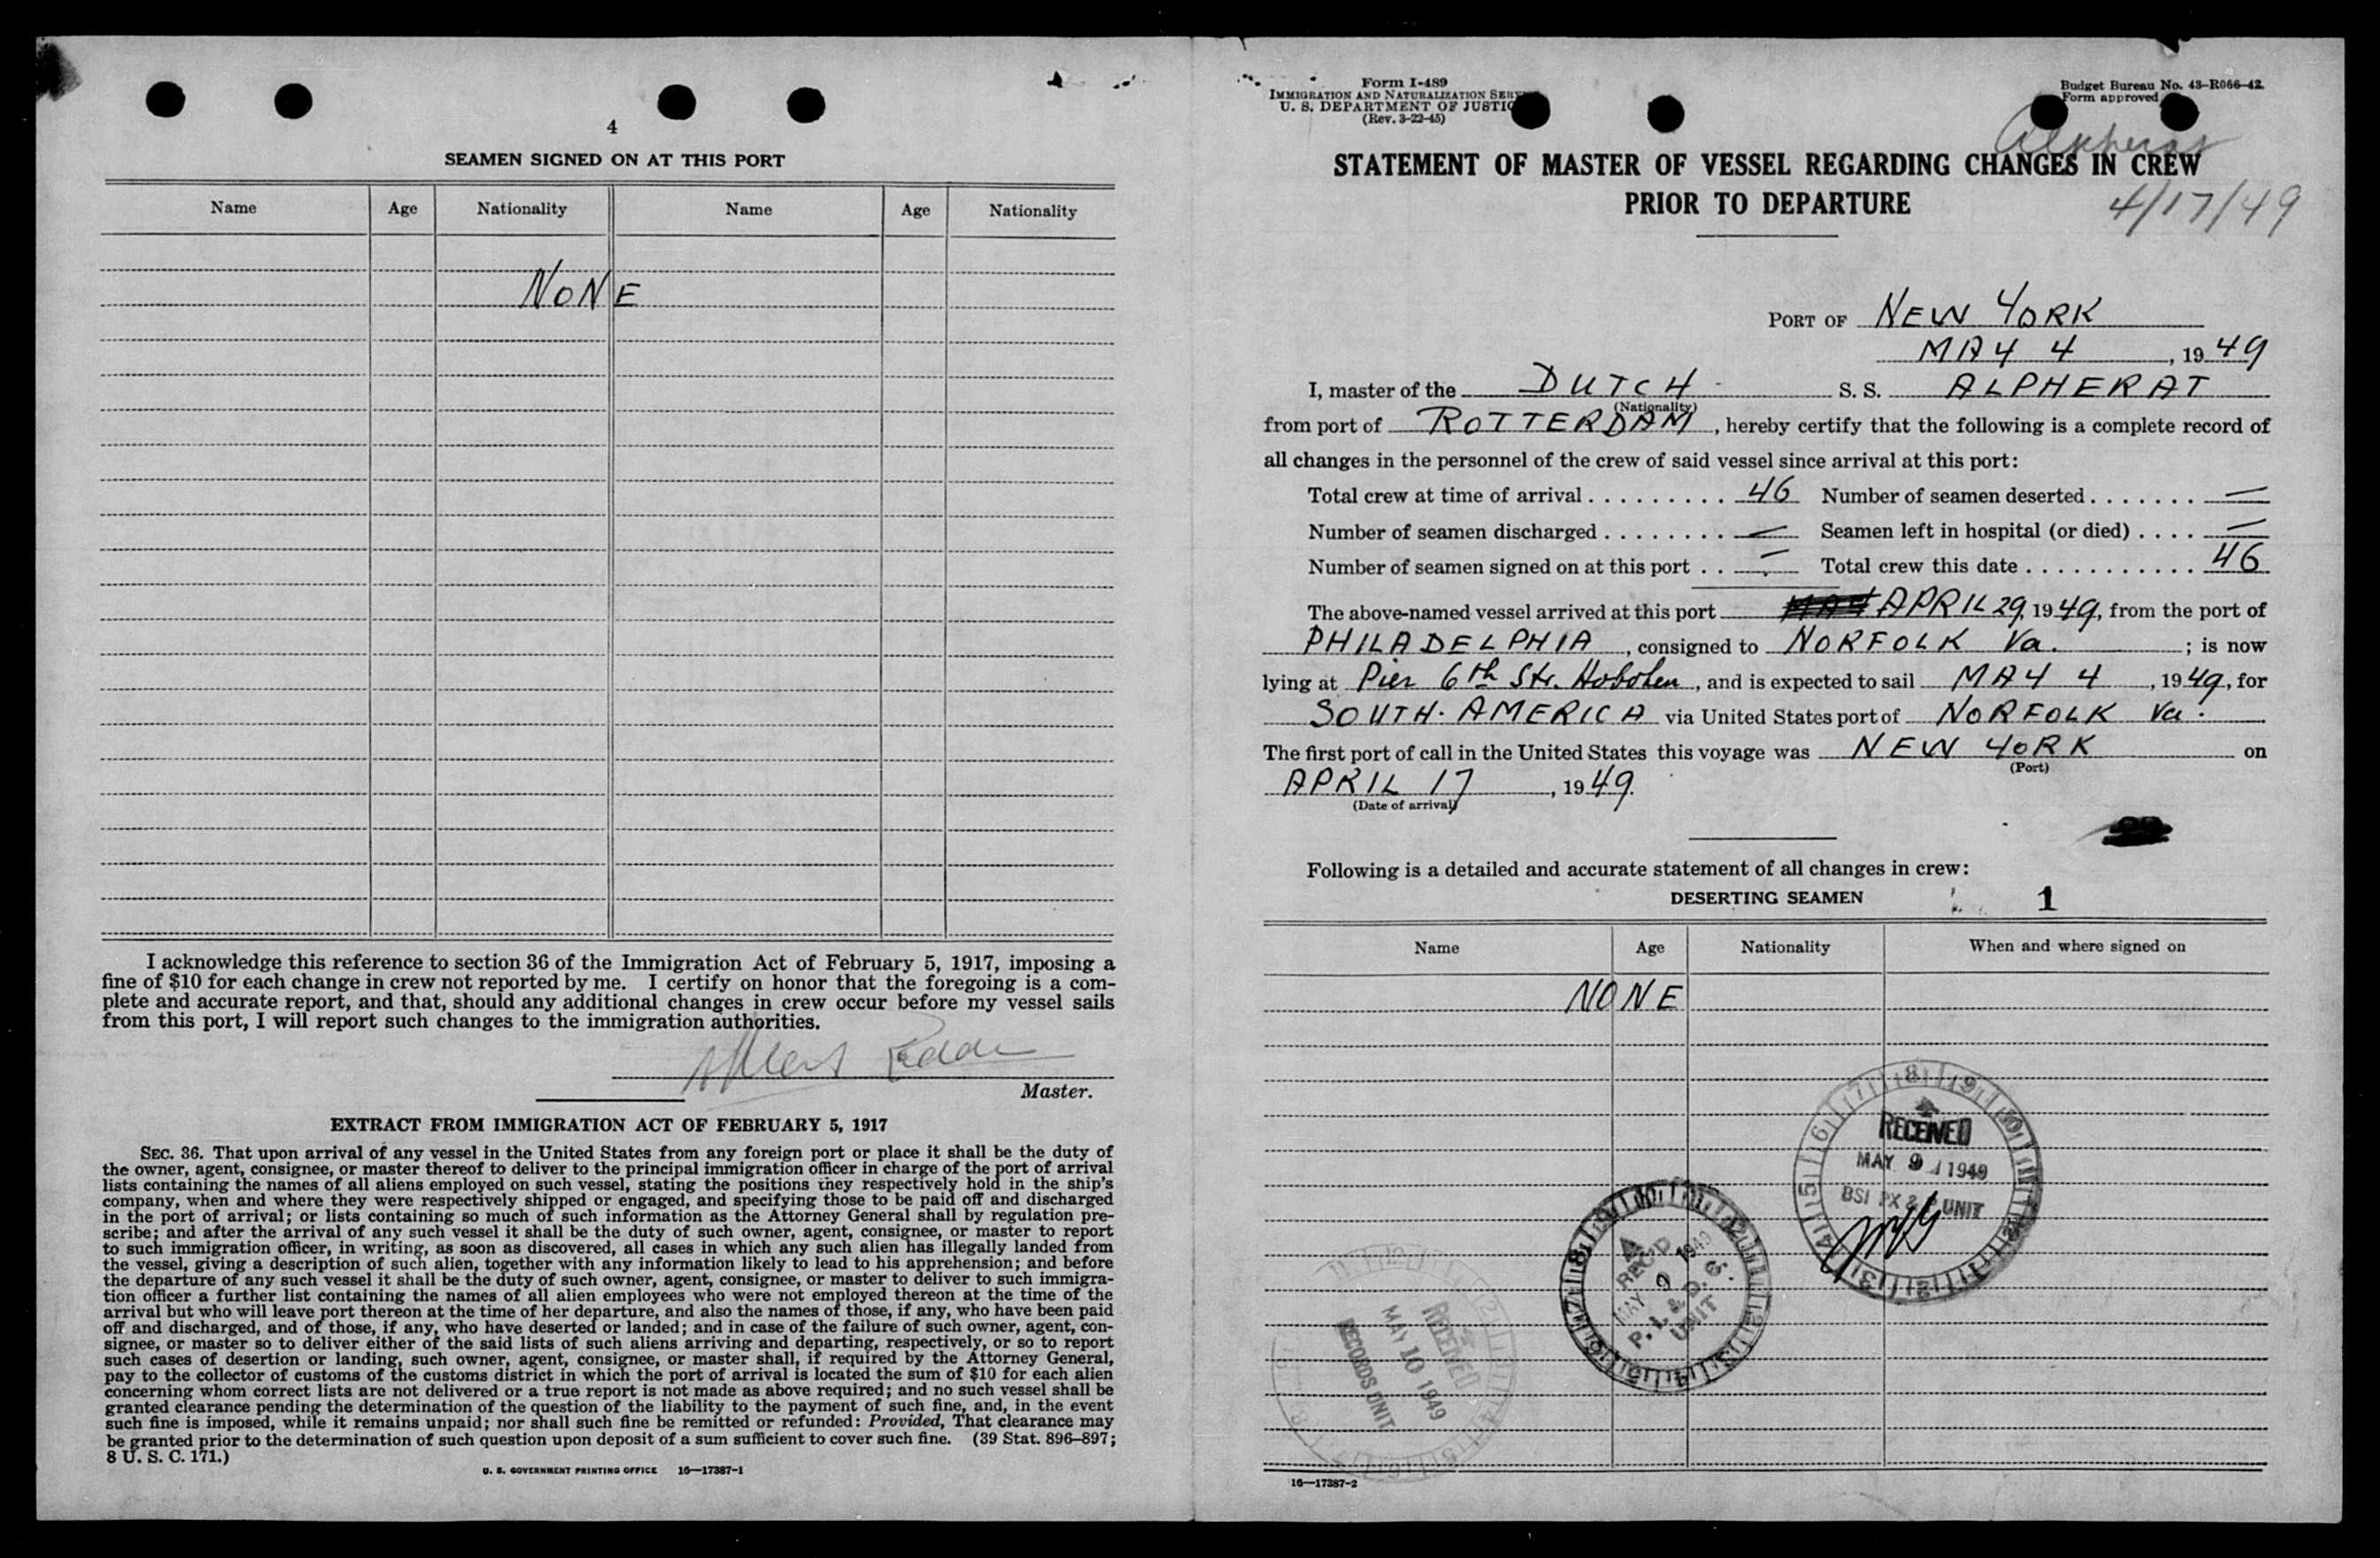 4
SEAMEN SIGNED ON AT THIS PORT
Name Age Nationality Name Age Nationality
NONE
I acknowledge this reference to section 36 of the Immigration Act of February 5, 1917, imposing a
fine of $10 for each change in crew not reported by me. I certify on honor that the foregoing is a com-
plete and accurate report, and that, should any additional changes in crew occur before my vessel sails
from this port, I will report such changes to the immigration authorities.
Master.
EXTRACT FROM IMMIGRATION ACT OF FEBRUARY 5, 1917
SEC. 36. That upon arrival of any vessel in the United States from any foreign port or place it shall be the duty of
the owner, agent, consignee, or master thereof to deliver to the principal immigration officer in charge of the port of arrival
lists containing the names of all aliens employed on such vessel, stating the positions they respectively hold in the ship's
company, when and where they were respectively shipped or engaged, and specifying those to be paid off and discharged
in the port of arrival; or lists containing so much of such information as the Attorney General shall by regulation pre-
scribe; and after the arrival of any such vessel it shall be the duty of such owner, agent, consignee, or master to report
to such immigration officer, in writing, as soon as discovered, all cases in which any such alien has illegally landed from
the vessel, giving a description of such alien, together with any information likely to lead to his apprehension; and before
the departure of any such vessel it shall be the duty of such owner, agent, consignee, or master to deliver to such immigra-
tion officer a further list containing the names of all alien employees who were not employed thereon at the time of the
arrival but who will leave port thereon at the time of her departure, and also the names of those, if any, who have been paid
off and discharged, and of those, if any, who have deserted or landed; and in case of the failure of such owner, agent, con-
signee, or master so to deliver either of the said lists of such aliens arriving and departing, respectively, or so to report
such cases of desertion or landing, such owner, agent, consignee, or master shall, if required by the Attorney General,
pay to the collector of customs of the customs district in which the port of arrival is located the sum of $10 for each alien
concerning whom correct lists are not delivered or a true report is not made as above required; and no such vessel shall be
granted clearance pending the determination of the question of the liability to the payment of such fine, and, in the event
such fine is imposed, while it remains unpaid; nor shall such fine be remitted or refunded: Provided, That clearance may
be granted prior to the determination of such question upon deposit of a sum sufficient to cover such fine. (39 Stat. 896–897;
8 U. S. C. 171.)
U. S. GOVERNMENT PRINTING OFFICE 16—17387-1
Form I-489
IMMIGRATION AND NATURALIZATION
U. S. DEPARTMENT OF
(Rev. 3-22-45)
Budget Bureau No. 43-R066-42.
Form approved
Alpherat
STATEMENT OF MASTER OF VESSEL REGARDING CHANGES IN CREW
PRIOR TO DEPARTURE
4/17/49
PORT OF NEW YORK
MAY 4, 1949
I, master of the DUTCH S. S. ALPHERAT
(Nationality)
from port of ROTTERDAM, hereby certify that the following is a complete record of
all changes in the personnel of the crew of said vessel since arrival at this port:
Total crew at time of arrival . . . . . . . . . 46 Number of seamen deserted . . . . . . . —
Number of seamen discharged . . . . . . . . — Seamen left in hospital (or died) . . . . —
Number of seamen signed on at this port . . — Total crew this date . . . . . . . . . . . . 46
The above-named vessel arrived at this port APRIL 29, 1949, from the port of
PHILADELPHIA, consigned to NORFOLK Va. ; is now
lying at Pier 6th Str. Hoboken, and is expected to sail MAY 4, 1949, for
SOUTH. AMERICA via United States port of NORFOLK Va.
The first port of call in the United States this voyage was NEW YORK on
(Port)
APRIL 17, 1949.
(Date of arrival)
Following is a detailed and accurate statement of all changes in crew:
DESERTING SEAMEN 1
Name Age Nationality When and where signed on
NONE
RECEIVED
MAY 9 1949
BSI PX & UNIT
REC'D
MAY 9 1949
P. I. & D. G.
UNIT
RECEIVED
MAY 10 1949
RECORDS UNIT
16—17387-2